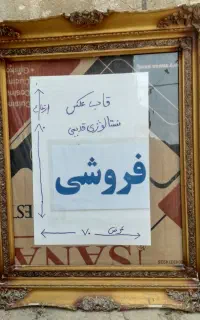 قاب عکس
نستالوژی قدیمی
ارتفاع
فروشی
عرض ۷۰
SANA